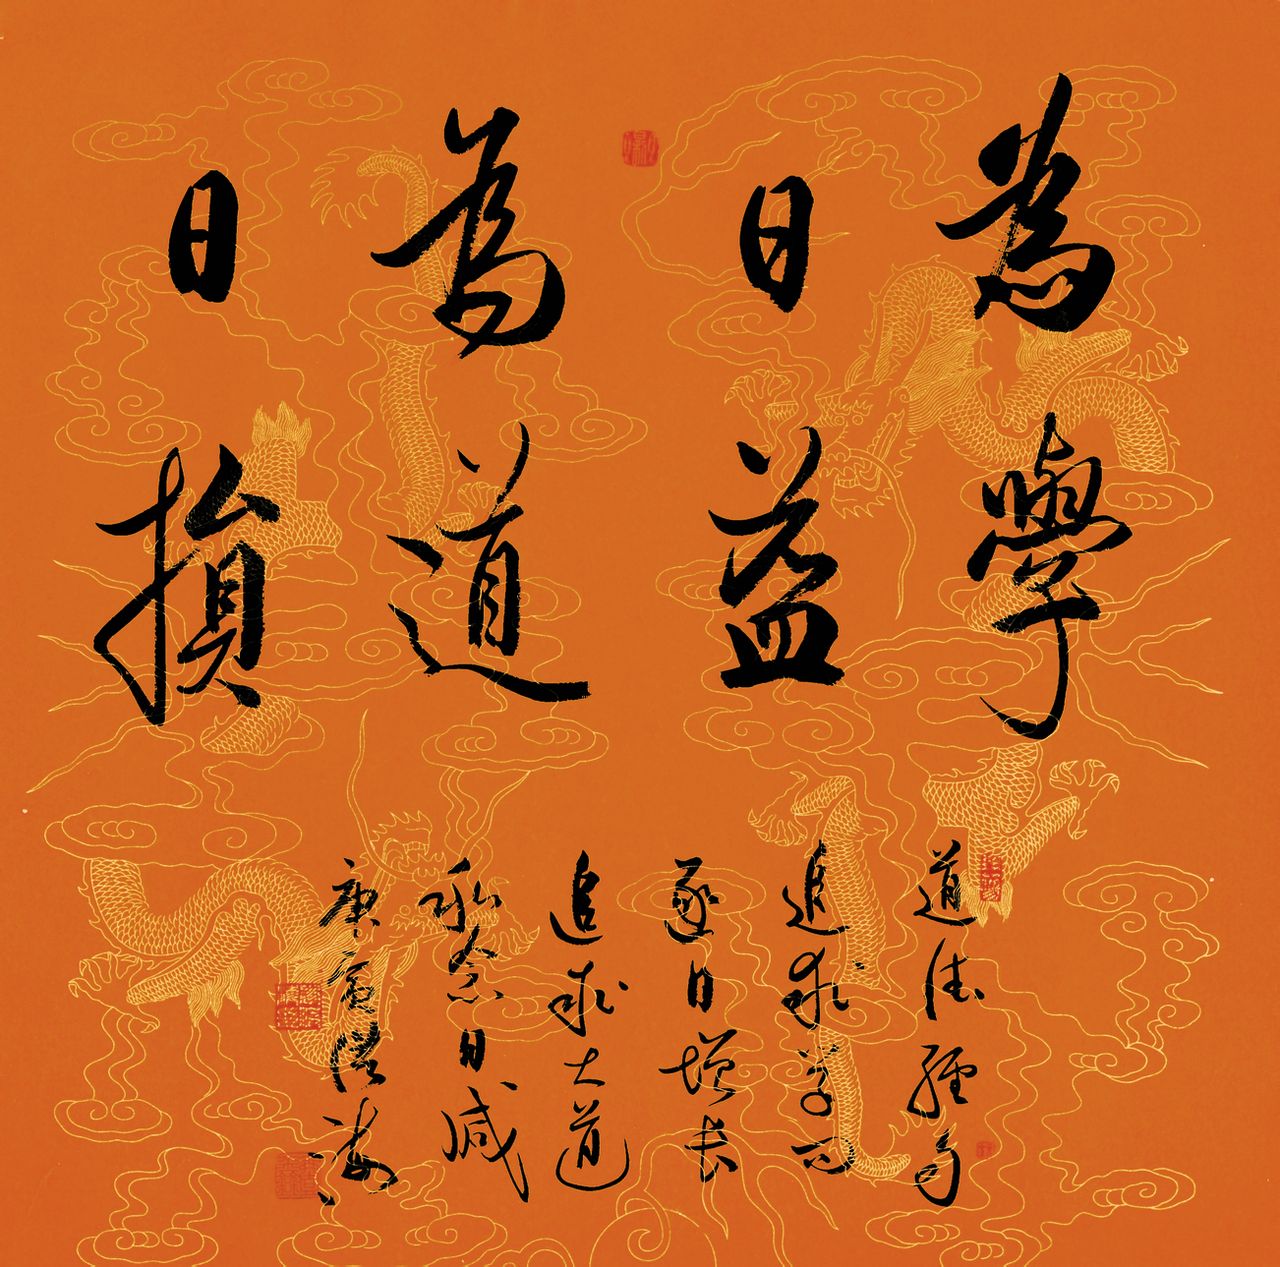 為學
日益
為道
日損
道德經句
追求学问
逐日增长
追求大道
私念日减
庚寅